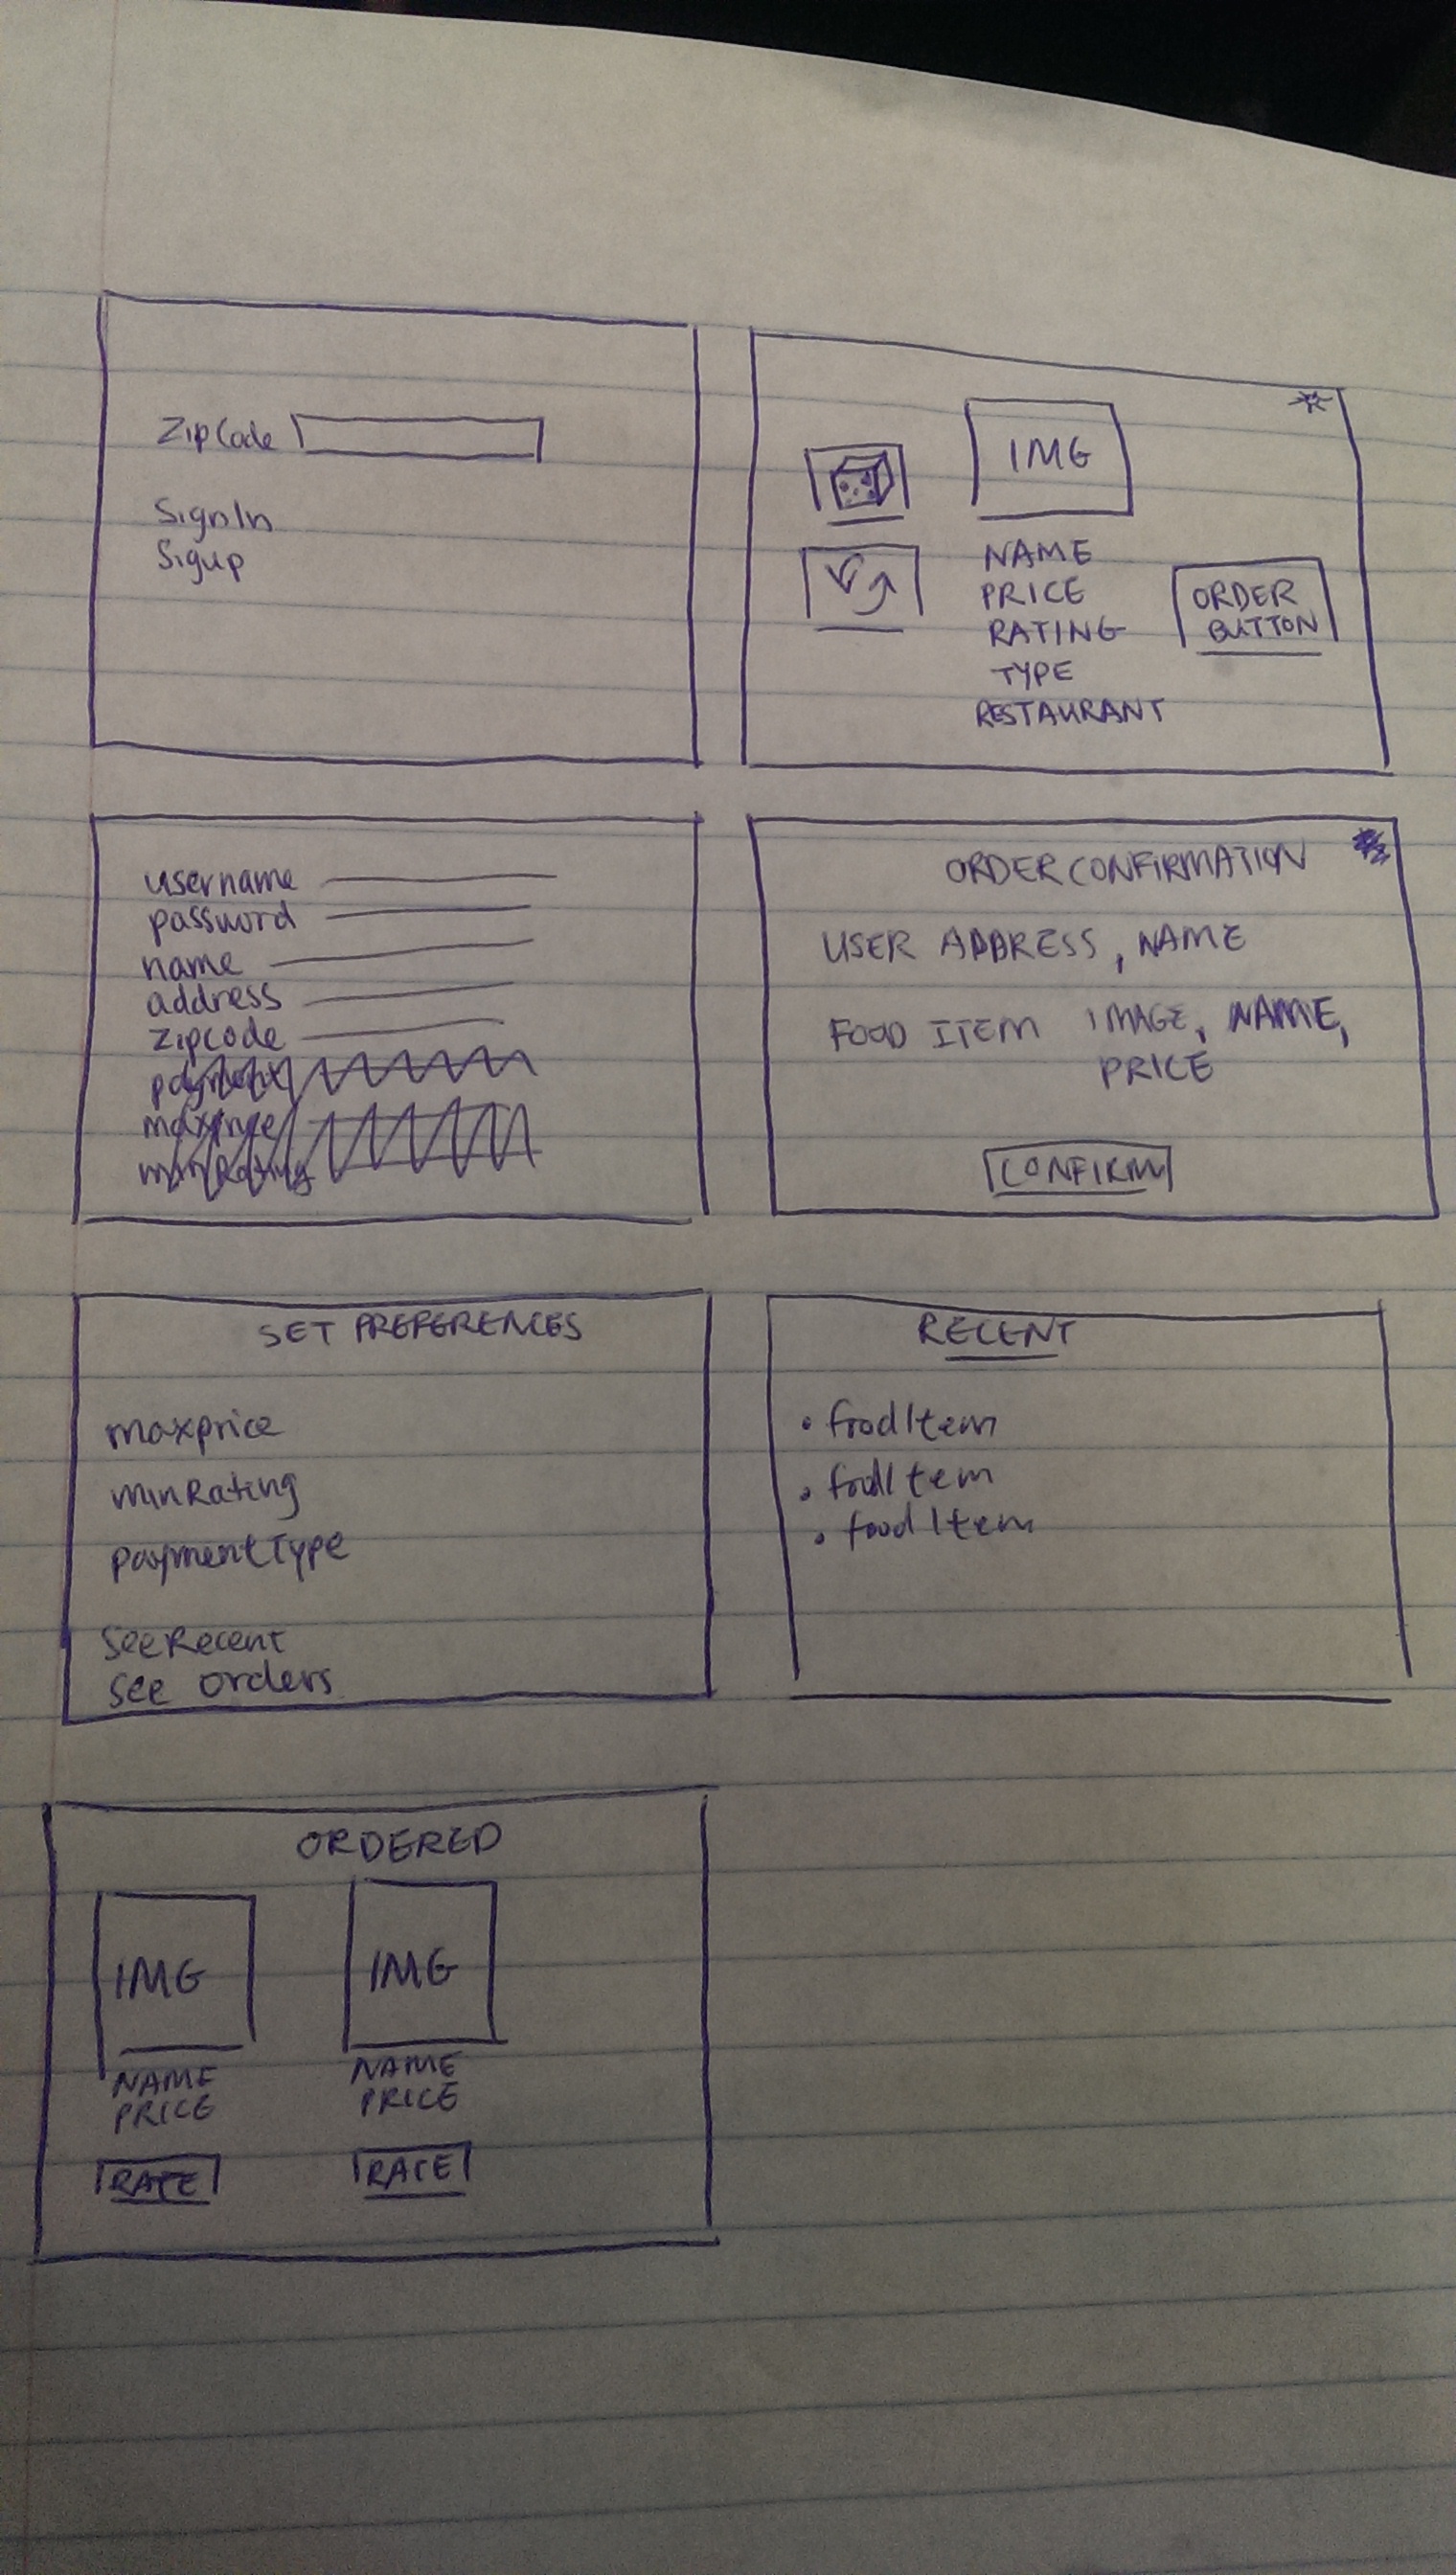 ZipCode
SignIn
Sigup
IMG
NAME
PRICE
RATING
TYPE
RESTAURANT
ORDER
BUTTON
username
password
name
address
zipcode
payment
maxprice
minRating
ORDER CONFIRMATION
USER ADDRESS, NAME
FOOD ITEM IMAGE, NAME,
PRICE
CONFIRM
SET PREFERENCES
maxprice
minRating
paymentType
SeeRecent
See orders
RECENT
• foodItem
• foodItem
• foodItem
ORDERED
IMG
NAME
PRICE
RATE
IMG
NAME
PRICE
RATE